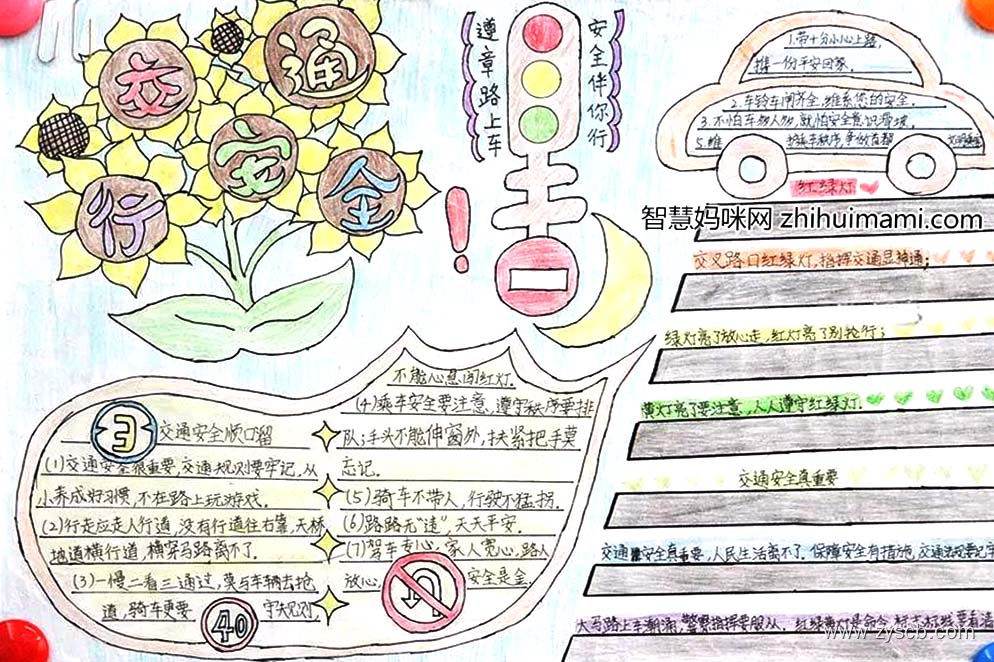 交通
行安全
遵章路上车
安全伴你行
1.带十分小心上路,
携一份平安回家.
2.车铃车闸齐全,维系您的安全.
3.不怕车多人多,就怕安全意识滑坡.
5.维
红绿灯
智慧妈咪网 zhihuimami.com
交叉路口红绿灯,指挥交通显神通;
绿灯亮了放心走,红灯亮了别抢行;
黄灯亮了要注意,人人遵守红绿灯.
交通安全真重要
交通安全真重要,人民生活离不了.保障安全有措施,交通法规要记牢
大马路上车潮涌,警察指挥要服从,红绿黄灯是命令
3
交通安全顺口留
(1)交通安全很重要,交通规则要牢记,从
小养成好习惯,不在路上玩游戏.
(2)行走应走人行道,没有行道往右靠,天桥
地道横行道,横穿马路离不了.
(3)一慢二看三通过,莫与车辆去抢
道,骑车更要 守规则,
40
不能心急闯红灯.
(4)乘车安全要注意,遵守秩序要排
队;手头不能伸窗外,扶紧把手莫
忘记.
(5)骑车不带人,行驶不猛拐.
(6)路路无“违”,天天平安.
(7)驾车专心,家人宽心,路人
放心, 安全是金.
www.zyscb.com